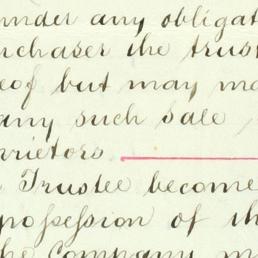 under any obligat
rchaser the trust
eof but may ma
any such sale
rietors
Trustee become
possession of th
the Company m